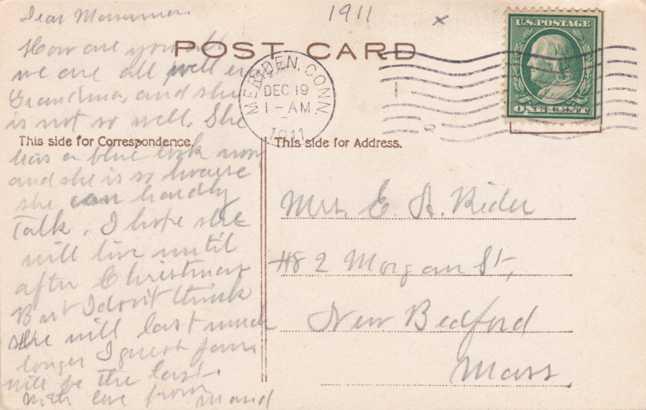 Dear Mamma.
1911
x
How are you all
POST CARD
we are all well but
Grandma, and she
is not so well. She
This side for Correspondence.
has a blue look now
and she is so hoarse
she can hardly
talk. I hope she
will live until
after Christmas
But I don't think
she will last much
longer I guess
will be the last.
With love from Maud
U.S. POSTAGE
ONE CENT
MERIDEN, CONN.
DEC 19
1-AM
1911
This side for Address.
Mrs. E. A. Rider
48 2 Morgan St,
New Bedford
Mass.